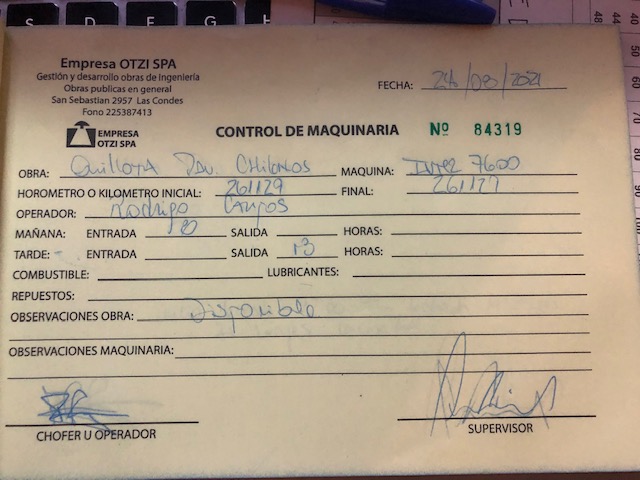 Empresa OTZI SPA
Gestión y desarrollo obras de Ingeniería
Obras publicas en general
San Sebastian 2957 Las Condes
Fono 225387413
FECHA: 26/08/2021
EMPRESA
OTZI SPA
CONTROL DE MAQUINARIA Nº 84319
OBRA: Quillota MAQUINA: 7600
HOROMETRO O KILOMETRO INICIAL: 261129 FINAL: 261177
OPERADOR: Rodrigo Campos
MAÑANA: ENTRADA 8 SALIDA 13 HORAS:
TARDE: ENTRADA SALIDA HORAS:
COMBUSTIBLE: LUBRICANTES:
REPUESTOS:
OBSERVACIONES OBRA: Disponible
OBSERVACIONES MAQUINARIA:
CHOFER U OPERADOR SUPERVISOR